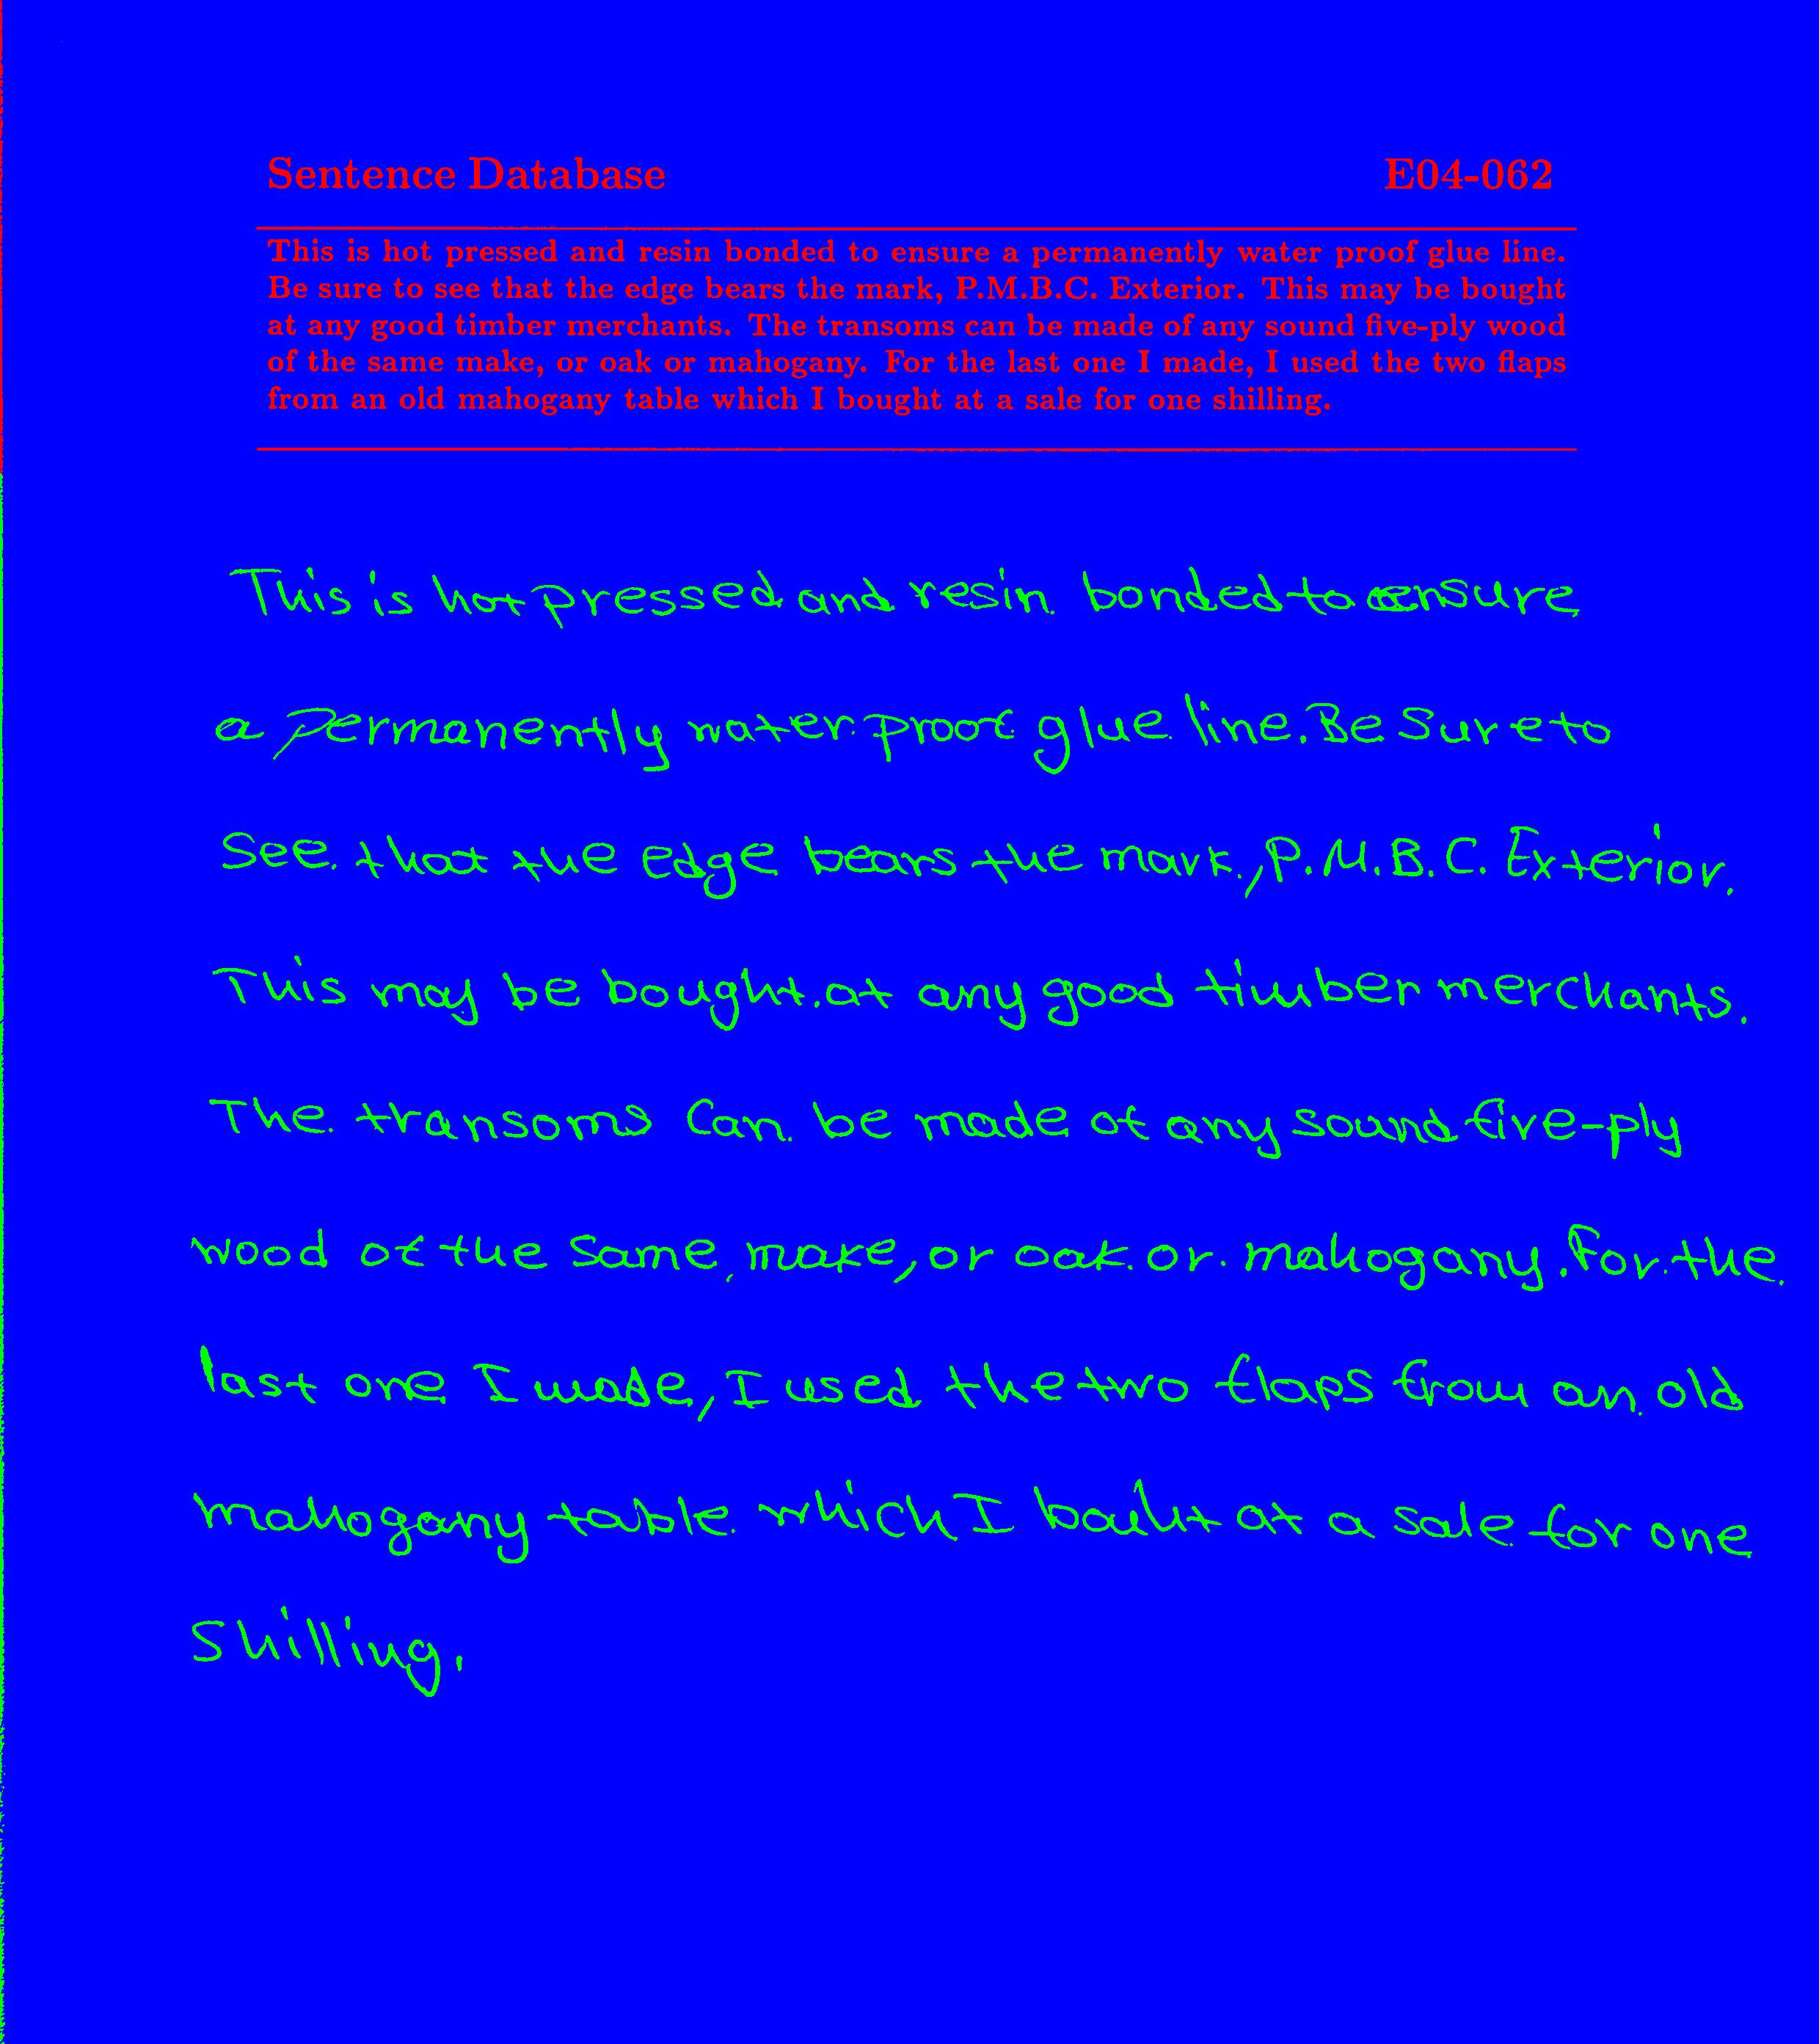 Sentence Database E04-062
This is hot pressed and resin bonded to ensure a permanently water proof glue line.
Be sure to see that the edge bears the mark, P.M.B.C. Exterior. This may be bought
at any good timber merchants. The transoms can be made of any sound five-ply wood
of the same make, or oak or mahogany. For the last one I made, I used the two flaps
from an old mahogany table which I bought at a sale for one shilling.
This is hot pressed and resin bonded to ensure
a permanently water proof glue line. Be Sure to
See that the edge bears the mark, P.M.B.C. Exterior.
This may be bought at any good timber merchants.
The transoms Can be made of any sound five-ply
wood of the same make, or oak or mahogany. For the
last one I made, I used the two flaps from an old
mahogany table which I bouht at a sale for one
Shilling.